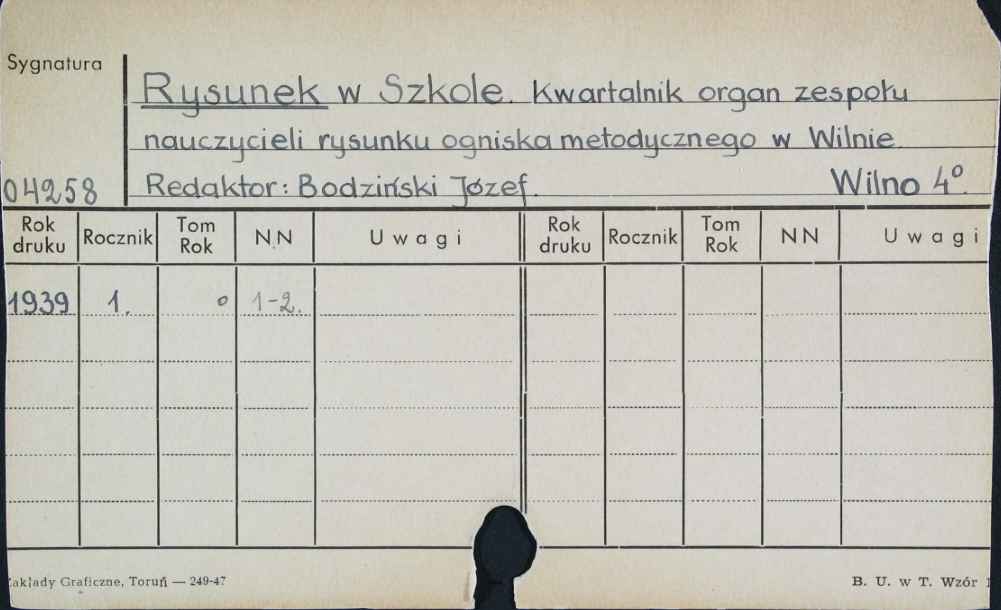 Sygnatura
Rysunek w Szkole. Kwartalnik organ zespołu
nauczycieli rysunku ogniska metodycznego w Wilnie
04258 Redaktor: Bodziński Józef. Wilno 4°.
Rok druku Rocznik Tom Rok N.N Uwagi Rok druku Rocznik Tom Rok NN Uwagi
1939 1. o 1-2.
akłady Graficzne, Toruń — 249-47 B. U. w T. Wzór 1